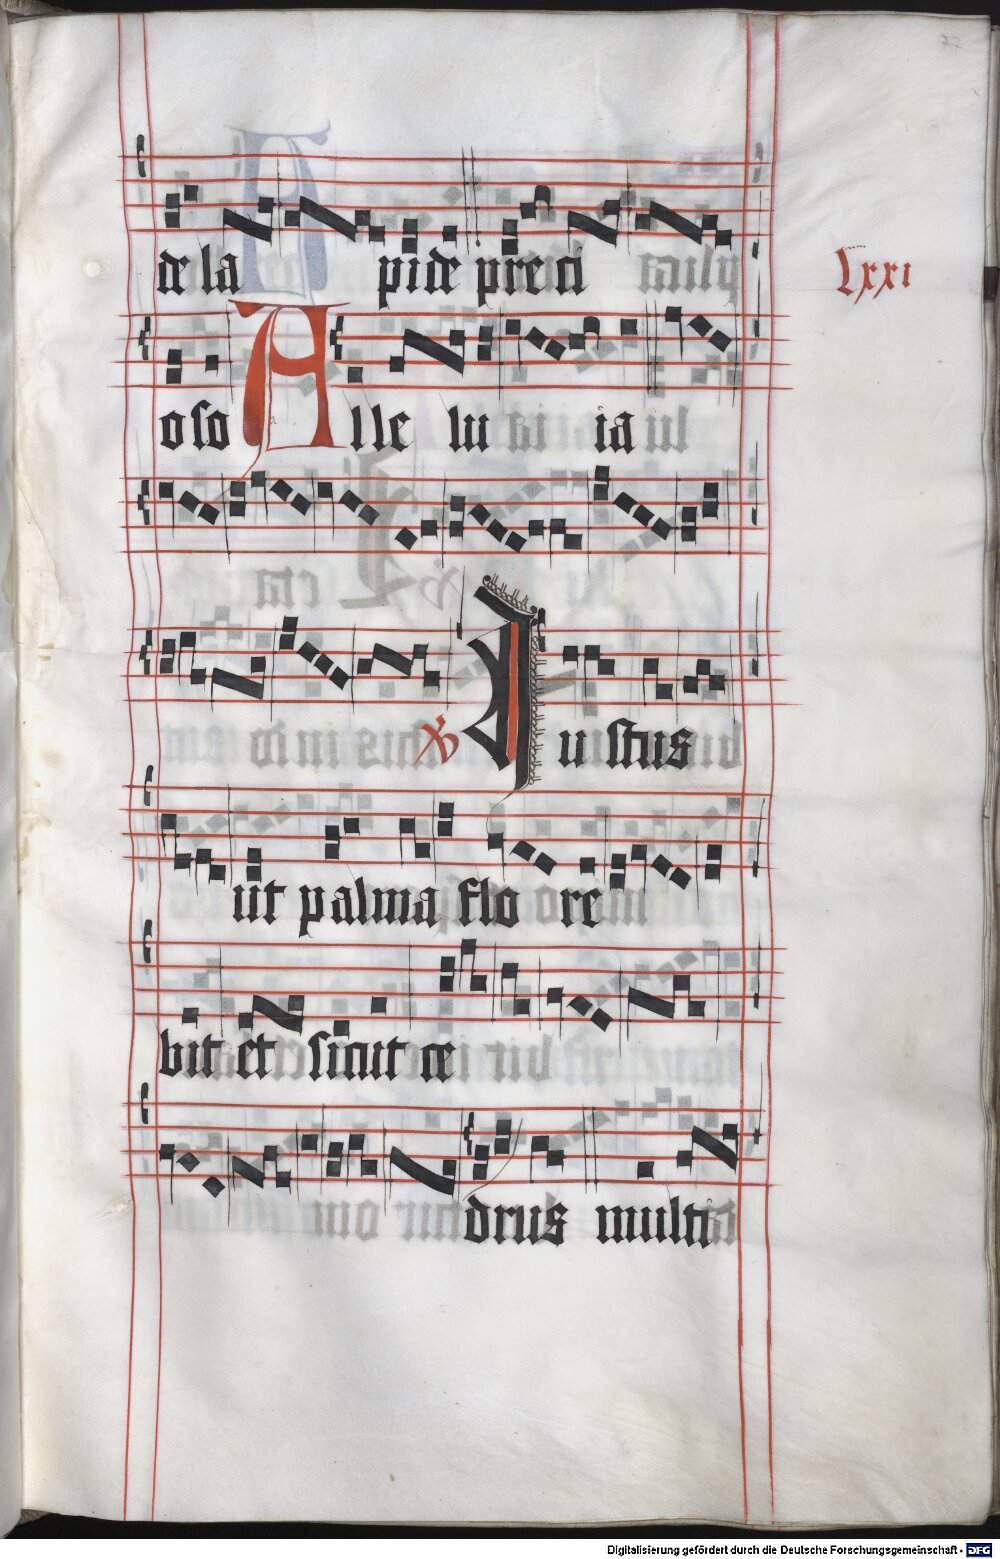 77
de la pide preci
Lxxi
oso Alle lu ia
℣ Iu stus
ut palma flo re
bit et sicut ce
drus multi
Digitalisierung gefördert durch die Deutsche Forschungsgemeinschaft - DFG